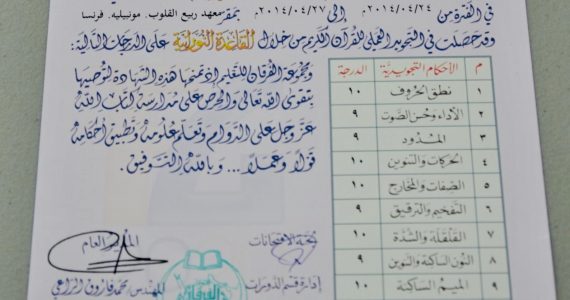 في الفترة من ٢٠١٤/٠٤/٢٤م إلى ٢٠١٤/٠٤/٢٧م بمقر معهد ربيع القلوب. مونبيليه. فرنسا
وقد حصلت في التجويد العملي للقرآن الكريم من خلال القاعدة النورانية على الدرجات التالية:
م الأحكام التجويدية الدرجة
١ نطق الحروف ١٠
٢ الأداء وحسن الصوت ٩
٣ المدود ٩
٤ الحركات والتنوين ١٠
٥ الصفات والمخارج ١٠
٦ التفخيم والترقيق ٩
٧ القلقلة والشدة ١٠
٨ النون الساكنة والتنوين ٩
٩ الميم الساكنة ١٠
ومجموعة الفرقان للتعليم إذ تمنحها هذه الشهادة لتوصيها
بتقوى الله تعالى والحرص على مدارسة كتاب الله
عز وجل على الدوام وتعلم علومه وتطبيق أحكامه
قولاً وعملاً... وبالله التوفيق.
لجنة الامتحانات
إدارة قسم الدورات
المدير العام
للمهندس محمد فاروق الراعي
الفرقان